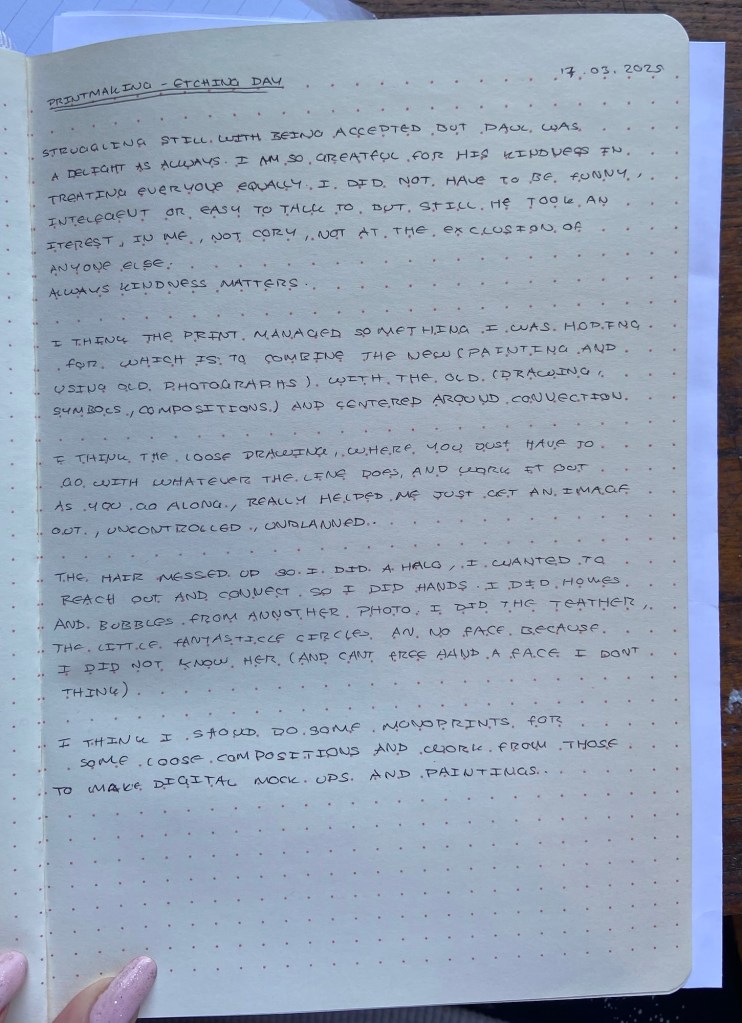 PRINTMAKING - ETCHING DAY
17.03.2025
STRUGGLING STILL WITH BEING ACCEPTED BUT PAUL WAS
A DELIGHT AS ALWAYS. I AM SO GREATFUL FOR HIS KINDNESS IN
TREATING EVERYONE EQUALLY. I DID NOT HAVE TO BE FUNNY,
INTELEGENT OR EASY TO TALK TO BUT STILL HE TOOK AN
ITEREST, IN ME, NOT CORY, NOT AT THE EXCLUSION OF
ANYONE ELSE.
ALWAYS KINDNESS MATTERS.
I THINK THE PRINT MANAGED SOMETHING I WAS HOPING
FOR WHICH IS TO COMBINE THE NEW (PAINTING AND
USING OLD PHOTOGRAPHS) WITH THE OLD (DRAWING,
SYMBOLS, COMPOSITIONS) AND CENTERED AROUND CONNECTION.
I THINK THE LOOSE DRAWING, WHERE YOU JUST HAVE TO
GO WITH WHATEVER THE LINE DOES, AND WORK IT OUT
AS YOU GO ALONG, REALLY HELPED ME JUST GET AN IMAGE
OUT, UNCONTROLLED, UNPLANNED.
THE HAIR MESSED UP SO I DID A HALO, I WANTED TO
REACH OUT AND CONNECT SO I DID HANDS. I DID HOMES
AND BUBBLES FROM ANNOTHER PHOTO, I DID THE TEATHER,
THE LITTLE FANTASTICLE CIRCLES AN NO FACE BECAUSE
I DID NOT KNOW HER (AND CANT FREE HAND A FACE I DONT
THINK)
I THINK I SHOULD DO SOME MONOPRINTS FOR
SOME LOOSE COMPOSITIONS AND WORK FROM THOSE
TO MAKE DIGITAL MOCK UPS AND PAINTINGS.